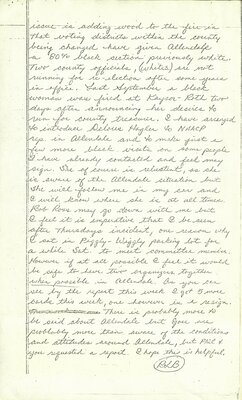 issue is adding wood to the fire in
that voting districts within the county
being changed have given Allendale
a 80% black section previously white.
Two county officials, (whites) are not
running for re-election after some years
in office. Last September a black
woman was fired at Kayser-Roth two
days after announcing her desire to
run for county treasurer. I have arranged
to introduce Delores Hagler to NAACP
rep in Allendale and to make just a
few more black visits on some people
I have already contacted and feel may
sign. She of course is reluctant, as she
is aware of the Allendale situation but
she will follow me in my car and
I will know where she is at all times
Rob Ross may go down with me but
I feel it is imperative that I be seen
after Thursdays incident, one reason why
I sat in Piggly-Wiggly parking lot for
a while Sat. to meet committee member.
However if at all possible I feel it would
be safe to have two organizers together
when possible in Allendale. As you can
see by the report this week I got 5 more
cards this week, one however is a resign.
There is probably more to
be said about Allendale but you are
probably more than aware of the conditions
and attitudes around Allendale, but Phil &
you requested a report. I hope this is helpful.